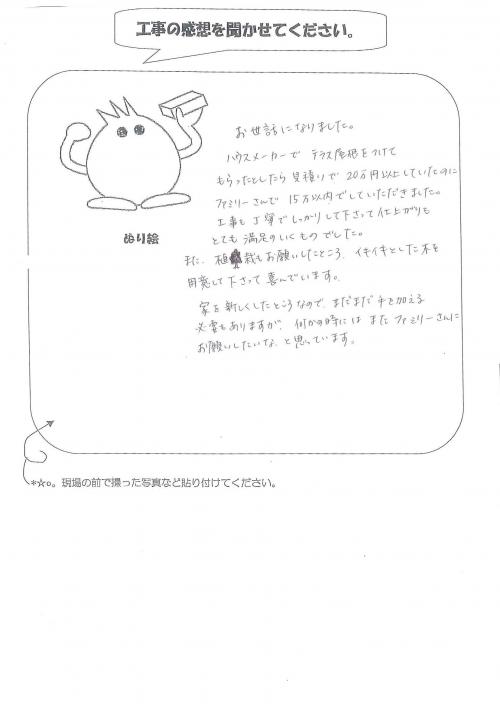 工事の感想を聞かせてください。
お世話になりました。
ハウスメーカーで テラス屋根をつけて
もらったとしたら見積りで 20万円以上していたのに
ファミリーさんで 15万以内でしていただきました。
工事も丁寧でしっかりして下さって仕上がりも
とても 満足のいくものでした。
ぬり絵
また、植栽もお願いしたところ、イキイキとした木を
用意して下さって 喜んでいます。
家を新しくしたところなので、まだまだ手を加える
必要もありますが、何かの時には またファミリーさんに
お願いしたいな、と思っています。
*☆○。現場の前で撮った写真など貼り付けてください。